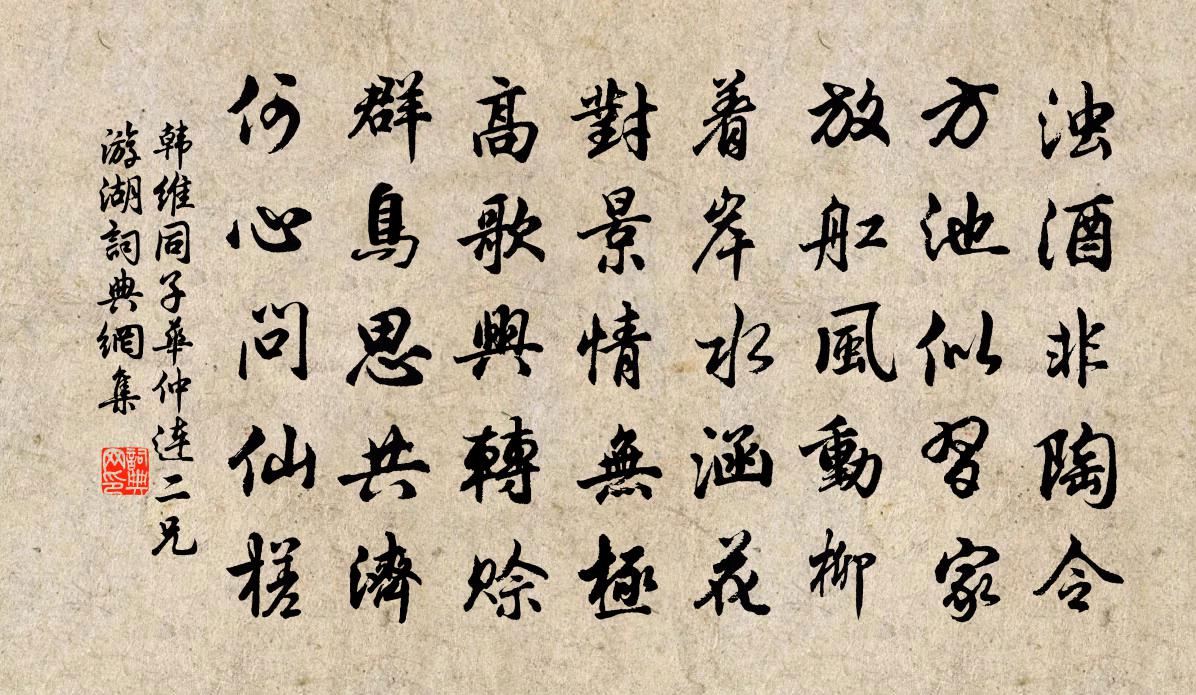 浊酒非陶令
方池似習家
放舡風動柳
着岸水涵花
對景情無極
高歌興轉賒
群鳥思共濟
何心問仙槎
韩維同子華仲連二兄
游湖詞典網集
詞典
网印